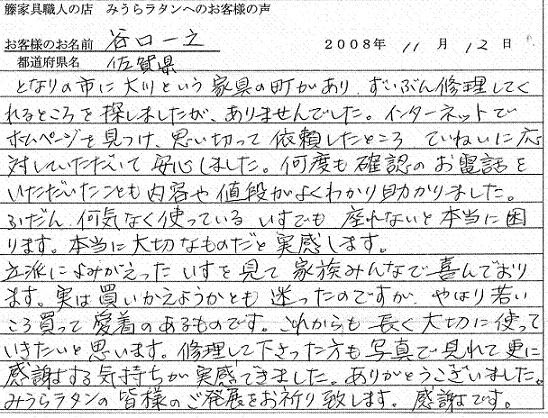 籐家具職人の店　みうらラタンへのお客様の声
お客様のお名前　谷口一之　2008年 11月 12日
都道府県名　佐賀県
となりの市に大川という家具の町があり、ずいぶん修理してく
れるところを探しましたが、ありませんでした。インターネットで
ホームページを見つけ、思い切って依頼したところ ていねいに応
対していただいて安心しました。何度も確認のお電話を
いただいたことも内容や値段がよくわかり助かりました。
ふだん、何気なく使っているいすでも 座れないと本当に困
ります。本当に大切なものだと実感します。
立派によみがえったいすを見て 家族みんなで喜んでおり
ます。実は買いかえようかとも迷ったのですが、やはり若い
ころ買って愛着のあるものです。これからも長く大切に使って
いきたいと思います。修理して下さった方も写真で見れて更に
感謝する気持ちが実感できました。ありがとうございました。
みうらラタンの皆様のご発展をお祈り致します。感謝です。